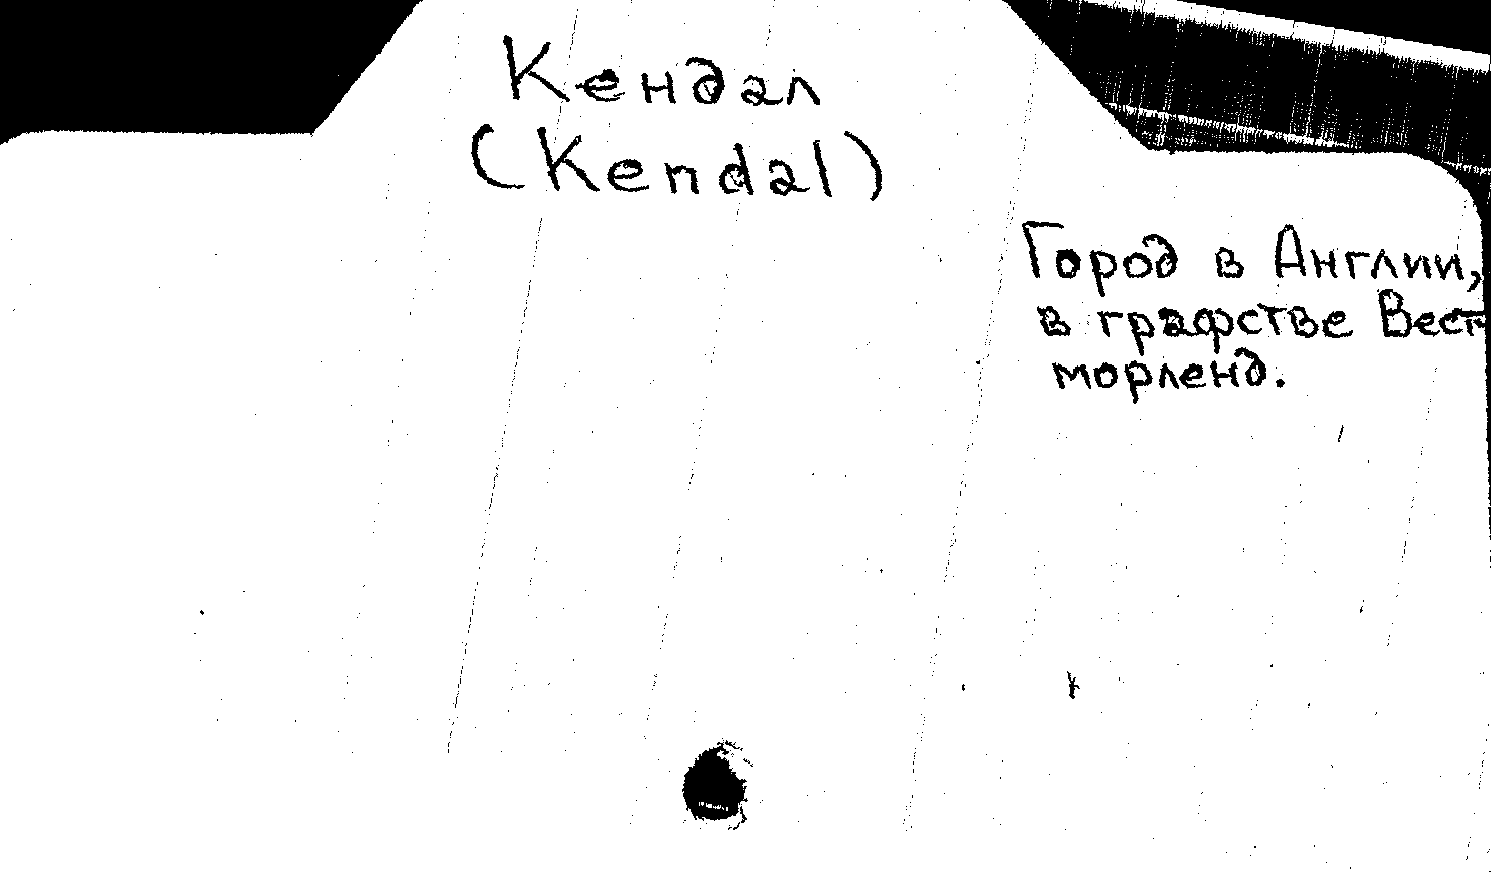 Кендал
(Kendal)
Город в Англии,
в графстве Вест-
морленд.